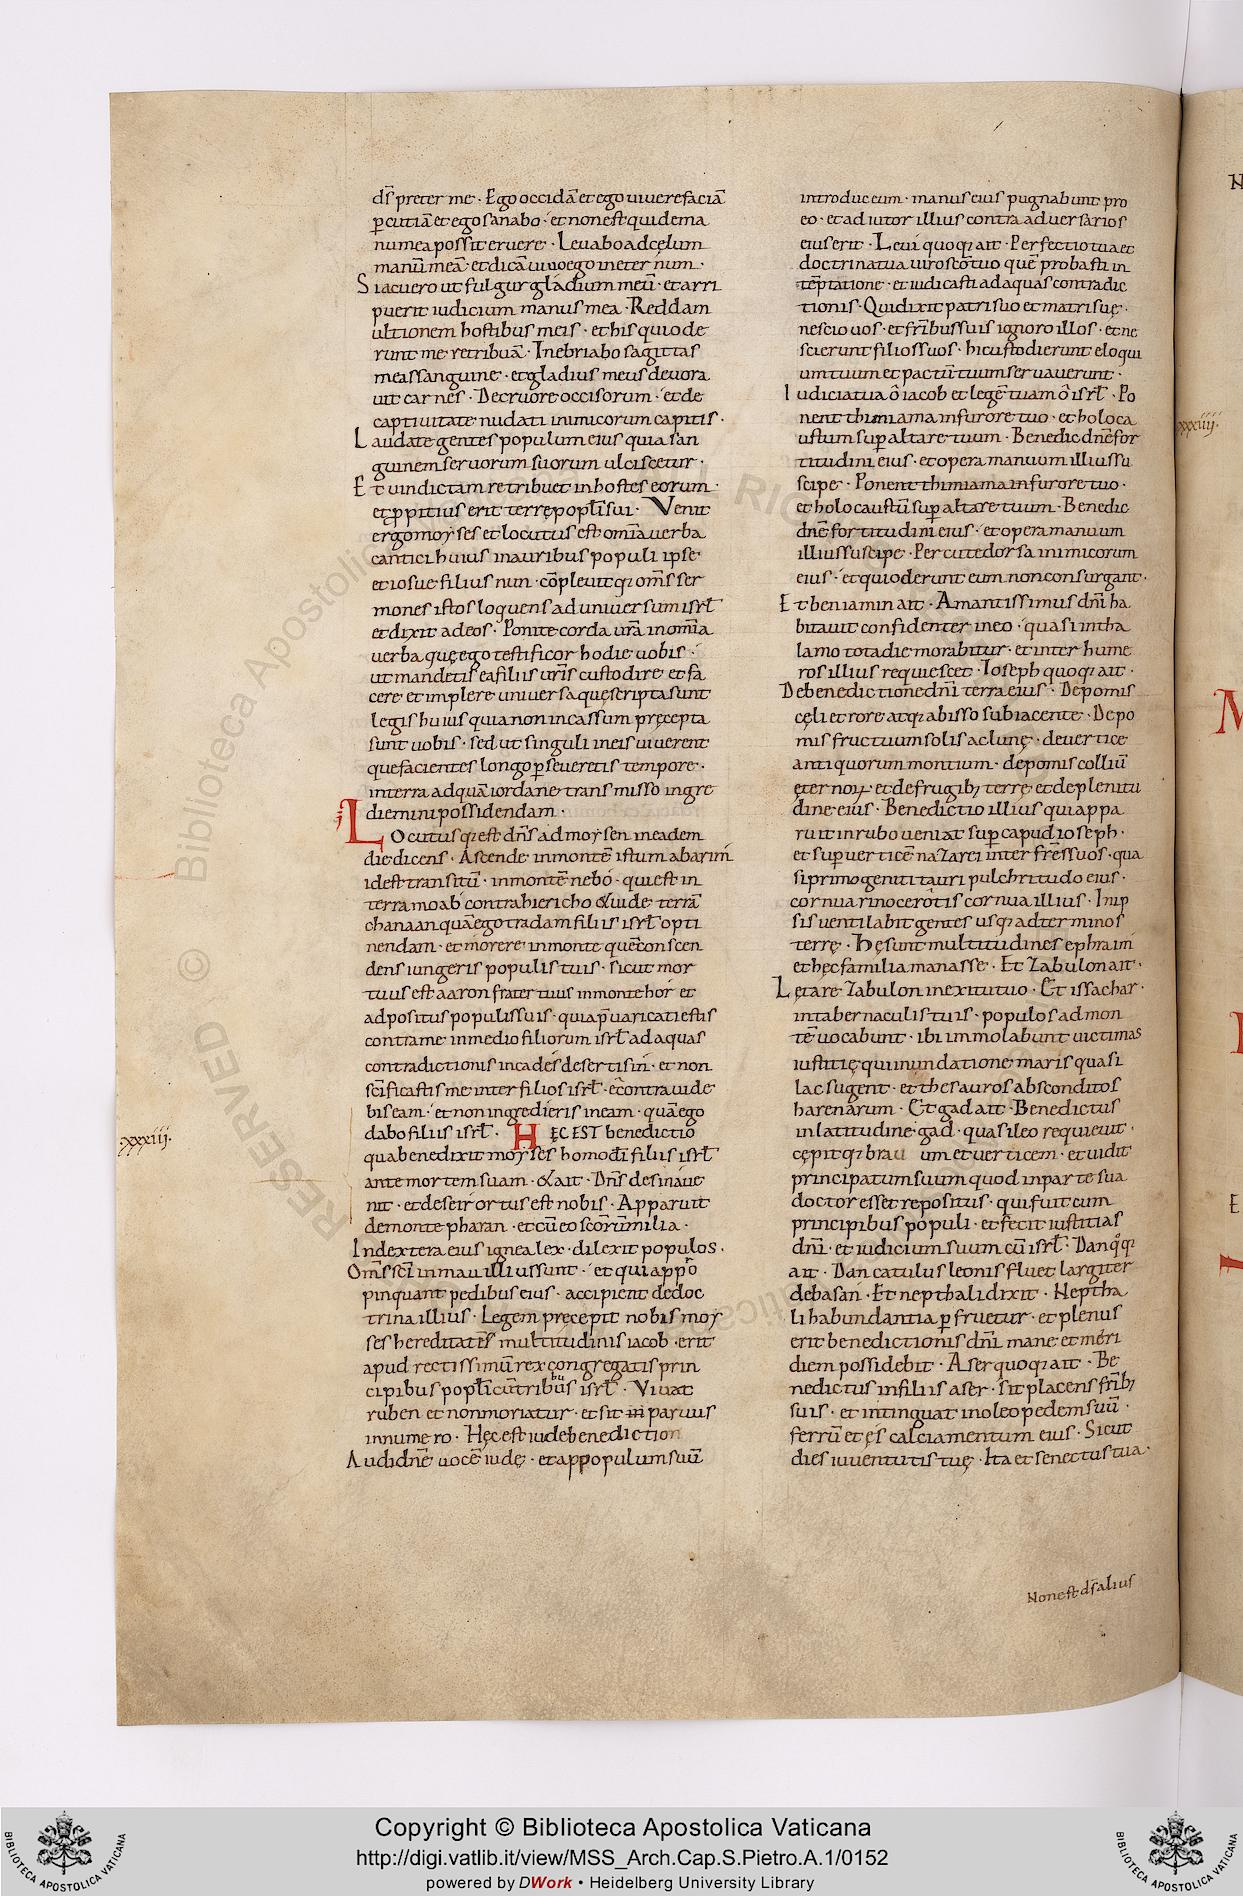 dс̄ preter me · Ego occidā et ego uiuere faciā
ꝑcutiā et ego sanabo · et non est qui de ma
nu mea possit eruere · Leuabo ad cęlum
manū meā · et dicā uiuo ego in eternum ·
Siacuero ut fulgur gladium meū · et arri
puerit iudicium manus mea · Reddam
ultionem hostibus meis · et his qui ode
runt me retribuā · Inebriabo sagittas
meas sanguine · et gladius meus deuora
uit carnes · De cruore occisorum · et de
captiuitate nudati inimicorum capitis ·
Laudate gentes populum eius quia san
guinem seruorum suorum ulciscetur ·
Et uindictam retribuet in hostes eorum ·
et ꝓpitius erit terrę popl̄i sui · Venit
ergo moyses et locutus est om̄ia uerba
cantici huius in auribus populi ipse
et iosue filius nun · cōpleuitq; om̄s ser
mones istos loquens ad uniuersum isrl̄
et dixit ad eos · Ponite corda ur̄a in om̄ia
uerba quę ego testificor hodie uobis ·
ut mandetis ea filiis ur̄is custodire et fa
cere et implere uniuersa quę scripta sunt
legis huius quia non in cassum pręcepta
sunt uobis · sed ut singuli in eis uiuerent
que facientes longo ꝑseueretis tempore ·
in terra ad quā iordane transmisso ingre
diemini possidendam ·
Locutusq; est dn̄s ad moysen in eadem
die dicens · Ascende in montē istum abarim
id est transitū · in montē nebo · qui est in
terra moab contra hiericho & uide terrā
chanaan quā ego tradam filiis isrl̄ opti
nendam · et morere in monte quē conscen
dens iungeris populis tuis · sicut mor
tuus est aaron frater tuus in monte hor et
adpositus populis suis · quia p̄uaricati estis
contra me in medio filiorum isrl̄ ad aquas
contradictionis in cades deserti sin · et non
sc̄ificastis me inter filios isrl̄ · e contra uide
bis eam · et non ingredieris in eam · quā ego
dabo filiis isrl̄ · HĘC EST benedictio
·xxxiii·
qua benedixit moyses homo dī filiis isrl̄
ante mortem suam · & ait · Dn̄s de sina ue
nit · et de seir ortus est nobis · Apparuit
de monte pharan · et cū eo sc̄orū milia ·
In dextera eius ignea lex · dilexit populos ·
Om̄s sc̄i in manu illius sunt · et qui appro
pinquant pedibus eius · accipient de doc
trina illius · Legem precepit nobis moy
ses hereditatēs multitudinis iacob · erit
apud rectissimū rex congregatis prin
cipibus popl̄i cū tribubus isrl̄ · Viuat
ruben et non moriatur · et sit in paruus
in numero · Hęc est iude benediction
Audi dn̄e uocē iudę · et app populum suū
introduc eum · manus eius pugnabunt pro
eo · et adiutor illius contra aduersarios
eius erit · Leui quoq; ait · Perfectio tua et
doctrina tua uiro scō tuo quē probasti in
tēptatione · et iudicasti ad aquas contradic
tionis · Qui dixit patri suo et matri suę ·
nescio uos · et fr̄ibus suis ignoro illos · et ne
scierunt filios suos · hi custodierunt eloqui
um tuum et pactū tuum seruauerunt ·
Iudicia tua o iacob et legē tuam o isrl̄ · Po
nent thimiama in furore tuo · et holoca
ustum sup̄ altare tuum · Benedic dn̄e for
titudini eius · et opera manuum illius su
scipe · Ponent thimiama in furore tuo ·
et holocaustū sup̄ altare tuum · Benedic
dn̄e fortitudini eius · et opera manuum
illius suscipe · Percute dorsa inimicorum
eius · et qui oderunt eum non consurgant ·
Et beniamin ait · Amantissimus dn̄i ha
bitauit confidenter in eo · quasi in tha
lamo tota die morabitur · et inter hume
ros illius requiescet · Ioseph quoq; ait ·
De benedictione dn̄i terra eius · De pomis
cęli et rore atq; abisso subiacente · De po
mis fructuum solis ac lunę · de uertice
antiquorum montium · de pomis colliū
ęternoꝝ · et de frugib; terrę et de plenitu
dine eius · Benedictio illius qui appa
ruit in rubo ueniat sup̄ capud ioseph ·
et sup̄ uerticē nazarei inter fr̄es suos · qua
si primogeniti tauri pulchritudo eius ·
cornua rinocerotis cornua illius · In ip
sis uentilabit gentes usq; ad terminos
terrę · Hę sunt multitudines ephraim
et hęc familia manasse · Et zabulon ait ·
Lętare zabulon in exitu tuo · Et issachar ·
in tabernaculis tuis · populos ad mon
tē uocabunt · ibi immolabunt uictimas
iustitię qui inundatione maris quasi
lac sugent · et thesauros absconditos
harenarum · Et gad ait · Benedictus
in latitudine gad · quasi leo requieuit ·
cępitq; brau um et uerticem · et uidit
principatum suum quod in parte sua
doctor esset repositus · qui fuit cum
principibus populi · et fecit iustitias
dn̄i · et iudicium suum cū isrl̄ · Dan qoq;
ait · Dan catulus leonis fluet largiter
de basan · Et nepthali dixit · Neptha
li habundantia ꝑfruetur · et plenus
erit benedictionis dn̄i mare et meri
diem possidebit · Aser quoq; ait · Be
nedictus in filiis aser · sit placens fr̄ib;
suis · et intinguat in oleo pedem suū ·
ferrū et ęs calciamentum eius · Sicut
dies iuuentutis tuę · Ita et senectus tua ·
Non est ds̄ alius
xxxiiii·
Copyright © Biblioteca Apostolica Vaticana
http://digi.vatlib.it/view/MSS_Arch.Cap.S.Pietro.A.1/0152
powered by DWork • Heidelberg University Library
BIBLIOTECA APOSTOLICA VATICANA
BIBLIOTECA APOSTOLICA VATICANA